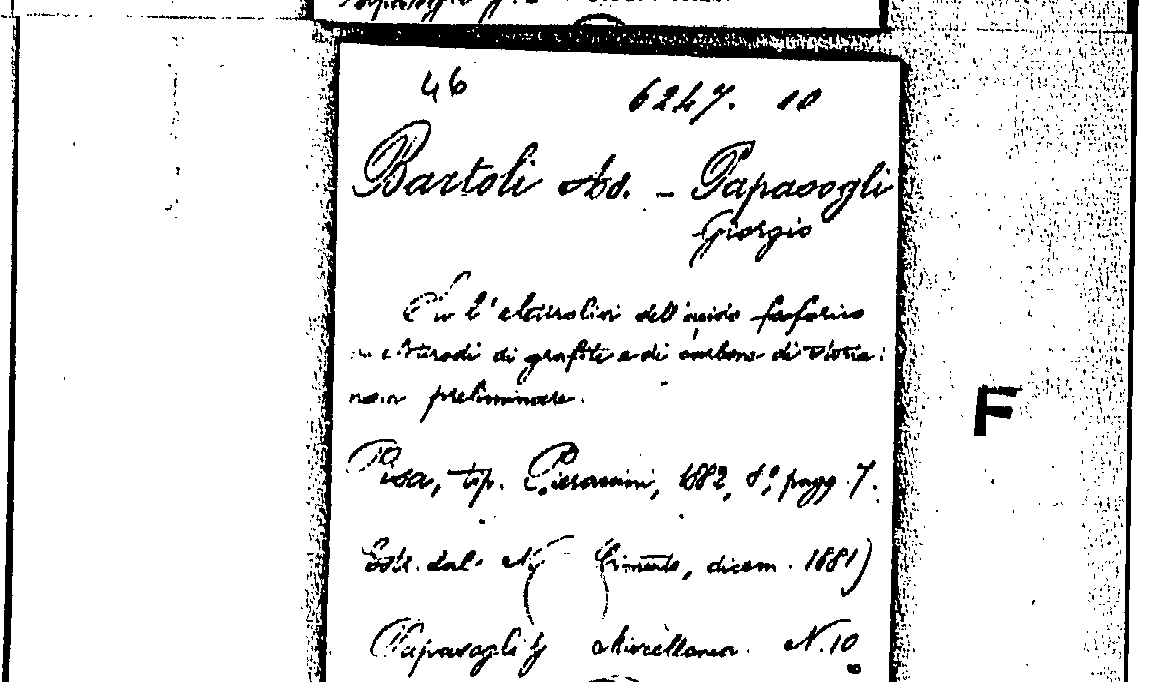 46 6247. 10
Bartoli Ad. - Papasogli
Giorgio
Su l'elettrolisi dell'acido fosforico
elettrodi di grafite e di carbone di storta:
nota preliminare.
Pisa, tip. Pieraccini, 1882, 8°, pagg. 7.
Estr. dal N. Cimento, dicem. 1881)
Papasogli G Miscellanea. N. 10
F